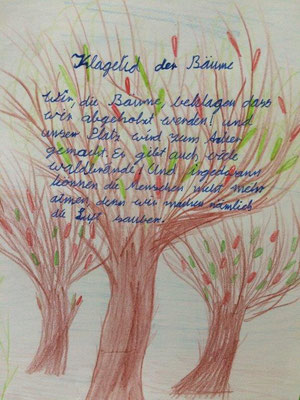 Klagelid der Bäume
Wir, die Bäume, beklagen dass
wir abgeholzt werden! und
unser Platz wird zum Acker
gemacht. Es gibt auch viele
waldbrände und irgedwann
können die Menschen nicht mehr
atmen, denn wir machen nämlich
die Luft sauber.